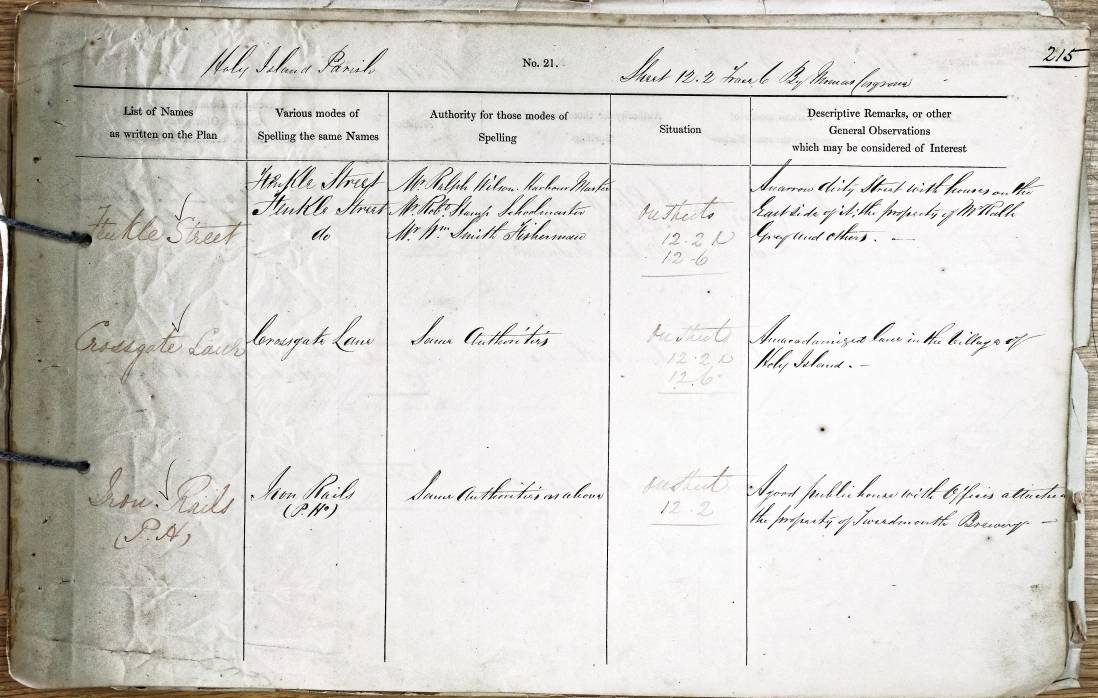 215
Holy Island Parish No. 21. Sheet 12.2 Trace 6 By Thomas Cosgrove
List of Names
as written on the Plan
Various modes of
Spelling the same Names
Authority for those modes of
Spelling
Situation
Descriptive Remarks, or other
General Observations
which may be considered of Interest
Finkle Street
Finkle Street
Finkle Street
do
Mr Ralph Wilson. Harbour Master
Mr Robt Stamp Schoolmaster
Mr Wm Smith Fisherman
On Sheets
12.2
12.6
A narrow dirty Street with houses on the
East side of it. the property of Mr
Grey and others. —
Crossgate Lane
Crossgate Lane
Same Authorities
On Sheets
12.2
12.6
A macadamized lane in the Village of
Holy Island. —
Iron Rails
(P.H)
Iron Rails
(P.Ho)
Same Authorities as above
On Sheet
12.2
A good public house with Offices attached
the property of Tweedmouth Brewery —